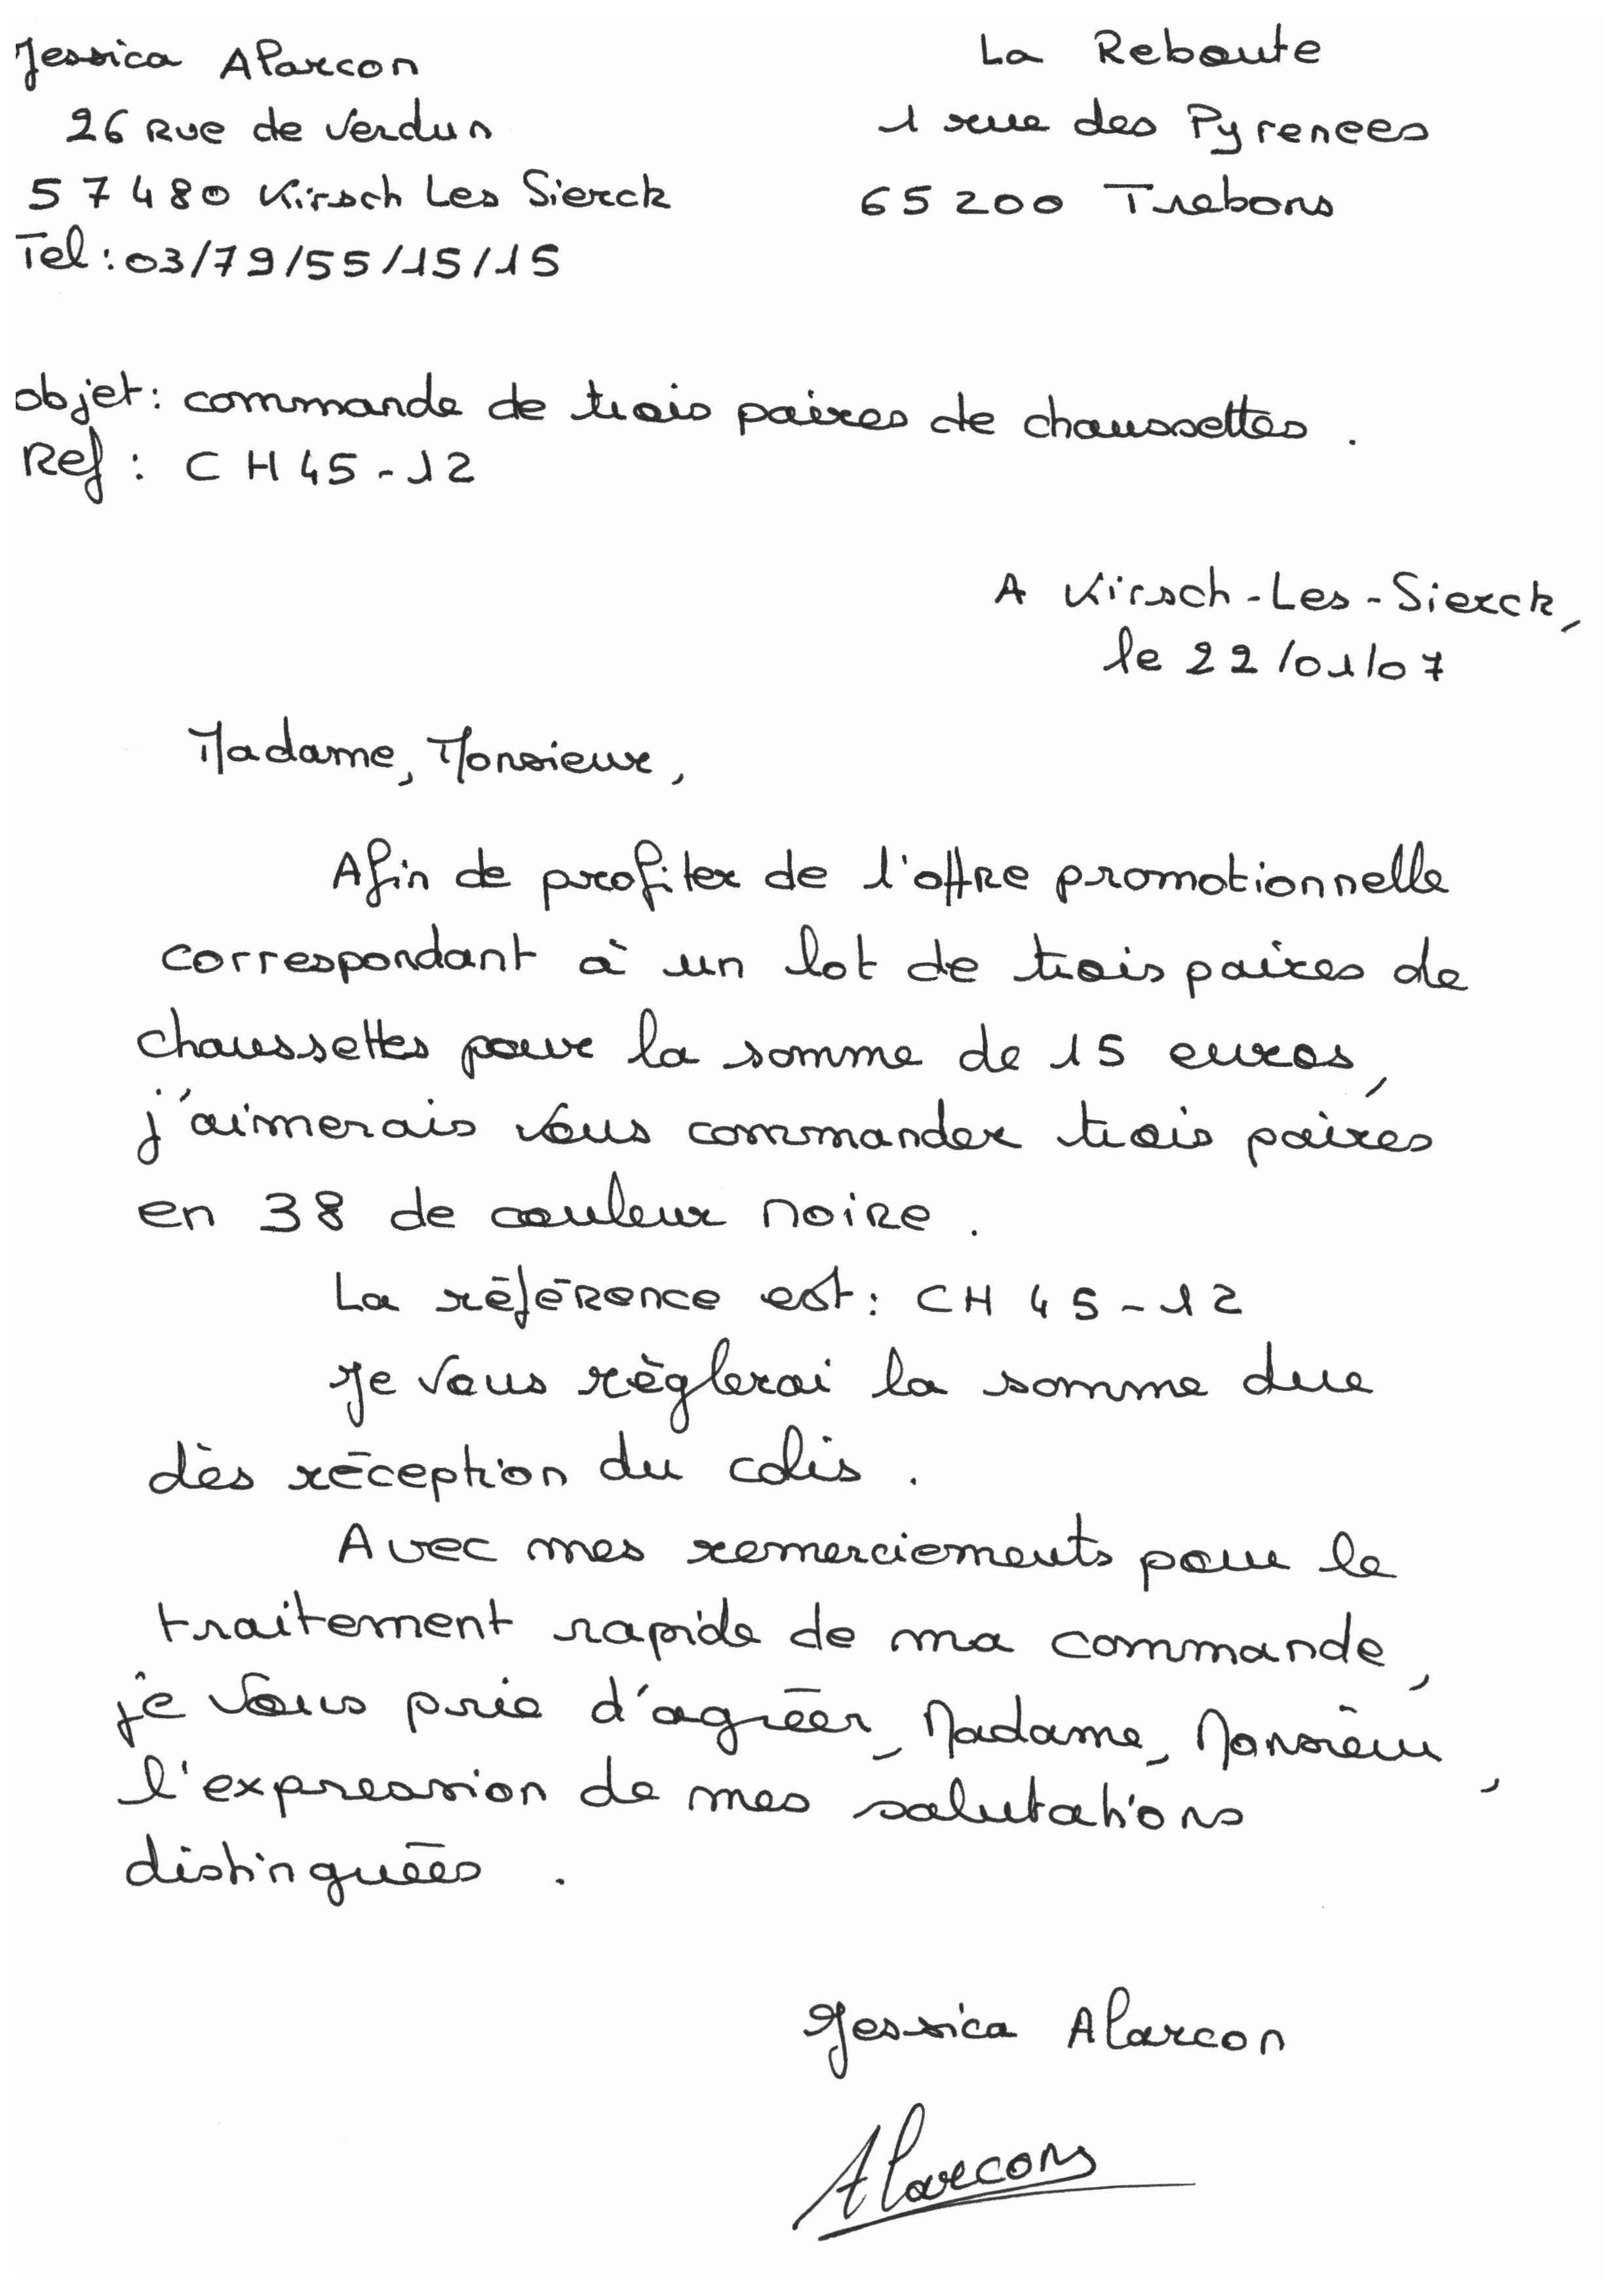 Jessica Alarcon
26 Rue de Verdun
57480 Kirsch Les Sierck
Tel : 03/79/55/15/15
La Reboute
1 rue des Pyrenees
65200 Trebons
objet : commande de trois paires de chaussettes .
Ref : CH45-12
A Kirsch-Les-Sierck,
le 22/01/07
Madame, Monsieur,
Afin de profiter de l'offre promotionnelle
correspondant à un lot de trois paires de
chaussettes pour la somme de 15 euros,
j'aimerais vous commander trois paires
en 38 de couleur noire .
La référence est : CH 45-12
Je vous règlerai la somme due
dès réception du colis .
Avec mes remerciements pour le
traitement rapide de ma commande,
je vous prie d'agréer, Madame, Monsieur,
l'expression de mes salutations
distinguées .
Jessica Alarcon
Alarcon